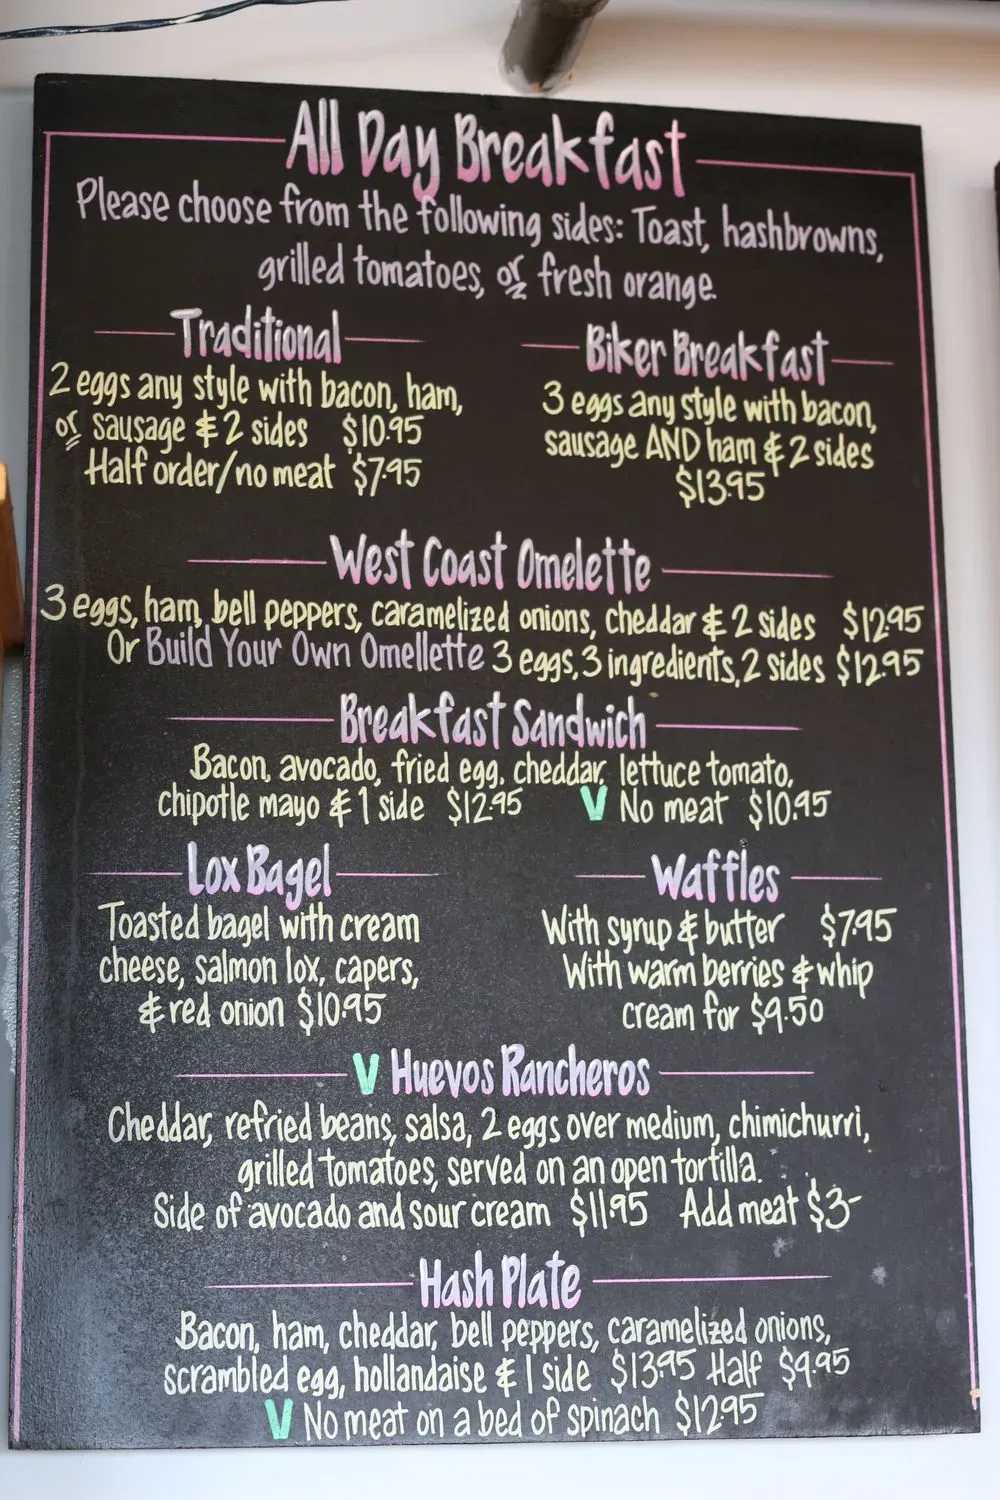 All Day Breakfast
Please choose from the following sides: Toast, hashbrowns,
grilled tomatoes, or fresh orange.
Traditional
2 eggs any style with bacon, ham,
or sausage & 2 sides $10.95
Half order/no meat $7.95
Biker Breakfast
3 eggs any style with bacon,
sausage AND ham & 2 sides
$13.95
West Coast Omelette
3 eggs, ham, bell peppers, caramelized onions, cheddar & 2 sides $12.95
Or Build Your Own Omellette 3 eggs, 3 ingredients, 2 sides $12.95
Breakfast Sandwich
Bacon, avocado, fried egg, cheddar, lettuce tomato,
chipotle mayo & 1 side $12.95 V No meat $10.95
Lox Bagel
Toasted bagel with cream
cheese, salmon lox, capers,
& red onion $10.95
Waffles
With syrup & butter $7.95
With warm berries & whip
cream for $9.50
V Huevos Rancheros
Cheddar, refried beans, salsa, 2 eggs over medium, chimichurri,
grilled tomatoes, served on an open tortilla.
Side of avocado and sour cream $11.95 Add meat $3-
Hash Plate
Bacon, ham, cheddar, bell peppers, caramelized onions,
scrambled egg, hollandaise & 1 side $13.95 Half $9.95
V No meat on a bed of spinach $12.95